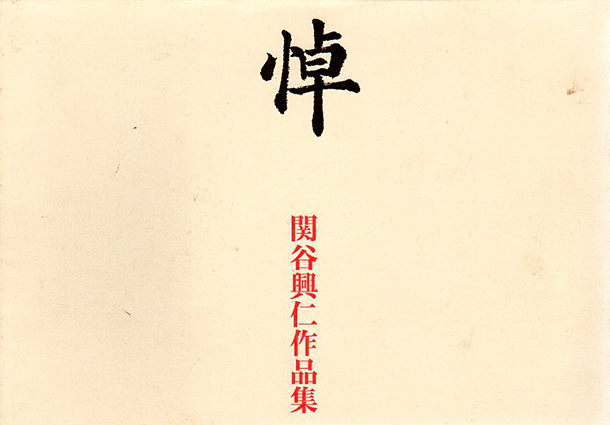 悼
関谷興仁作品集